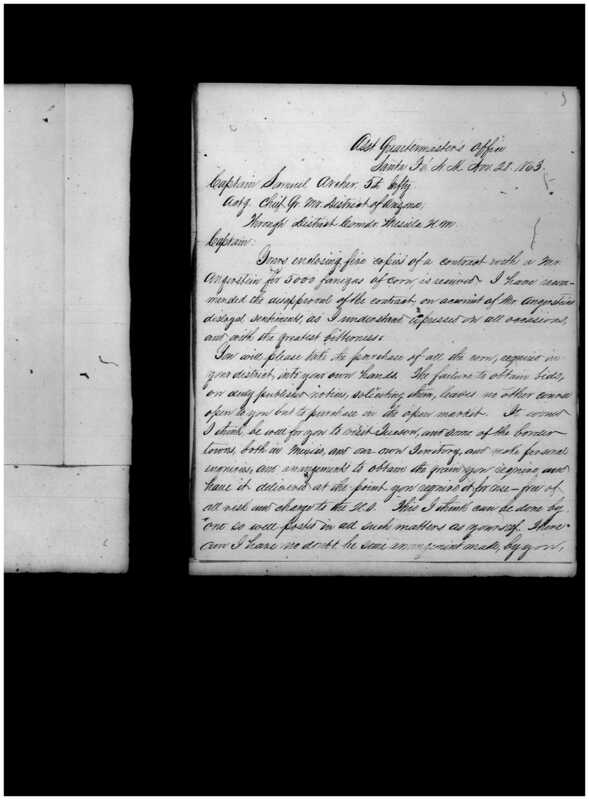 Asst Quartermaster's Office
Santa Fé N.M. Nov. 28. 1863.
Captain Samuel Archer 5th Infty
Actg. Chief Qr Mr District of Arizona,
Through District Comdr Mesilla N.M.
Captain:
Yours enclosing five copies of a contract with a Mr
Angerstein for 5000 fanegas of corn, is received. I have recom-
mended the disapproval of the contract, on account of Mr Angersteins
disloyal sentiments, as I understand expressed on all occasions,
and with the greatest bitterness.
You will please take the purchase of all the corn, required in
your district, into your own hands. The failure to obtain bids,
on duly published notices, soliciting them, leaves no other course
open to you but to purchase in the open market. It would
I think, be well for you to visit Tucson, and some of the border
towns, both in Mexico, and our own Territory, and make personal
inquiries, and arrangements to obtain the grain you require, and
have it delivered at the point you require it for use - free of
all risk and charge to the U.S. This I think can be done by
one so well posted in all such matters as yourself. There
can I have no doubt, be some arrangement made, by you,